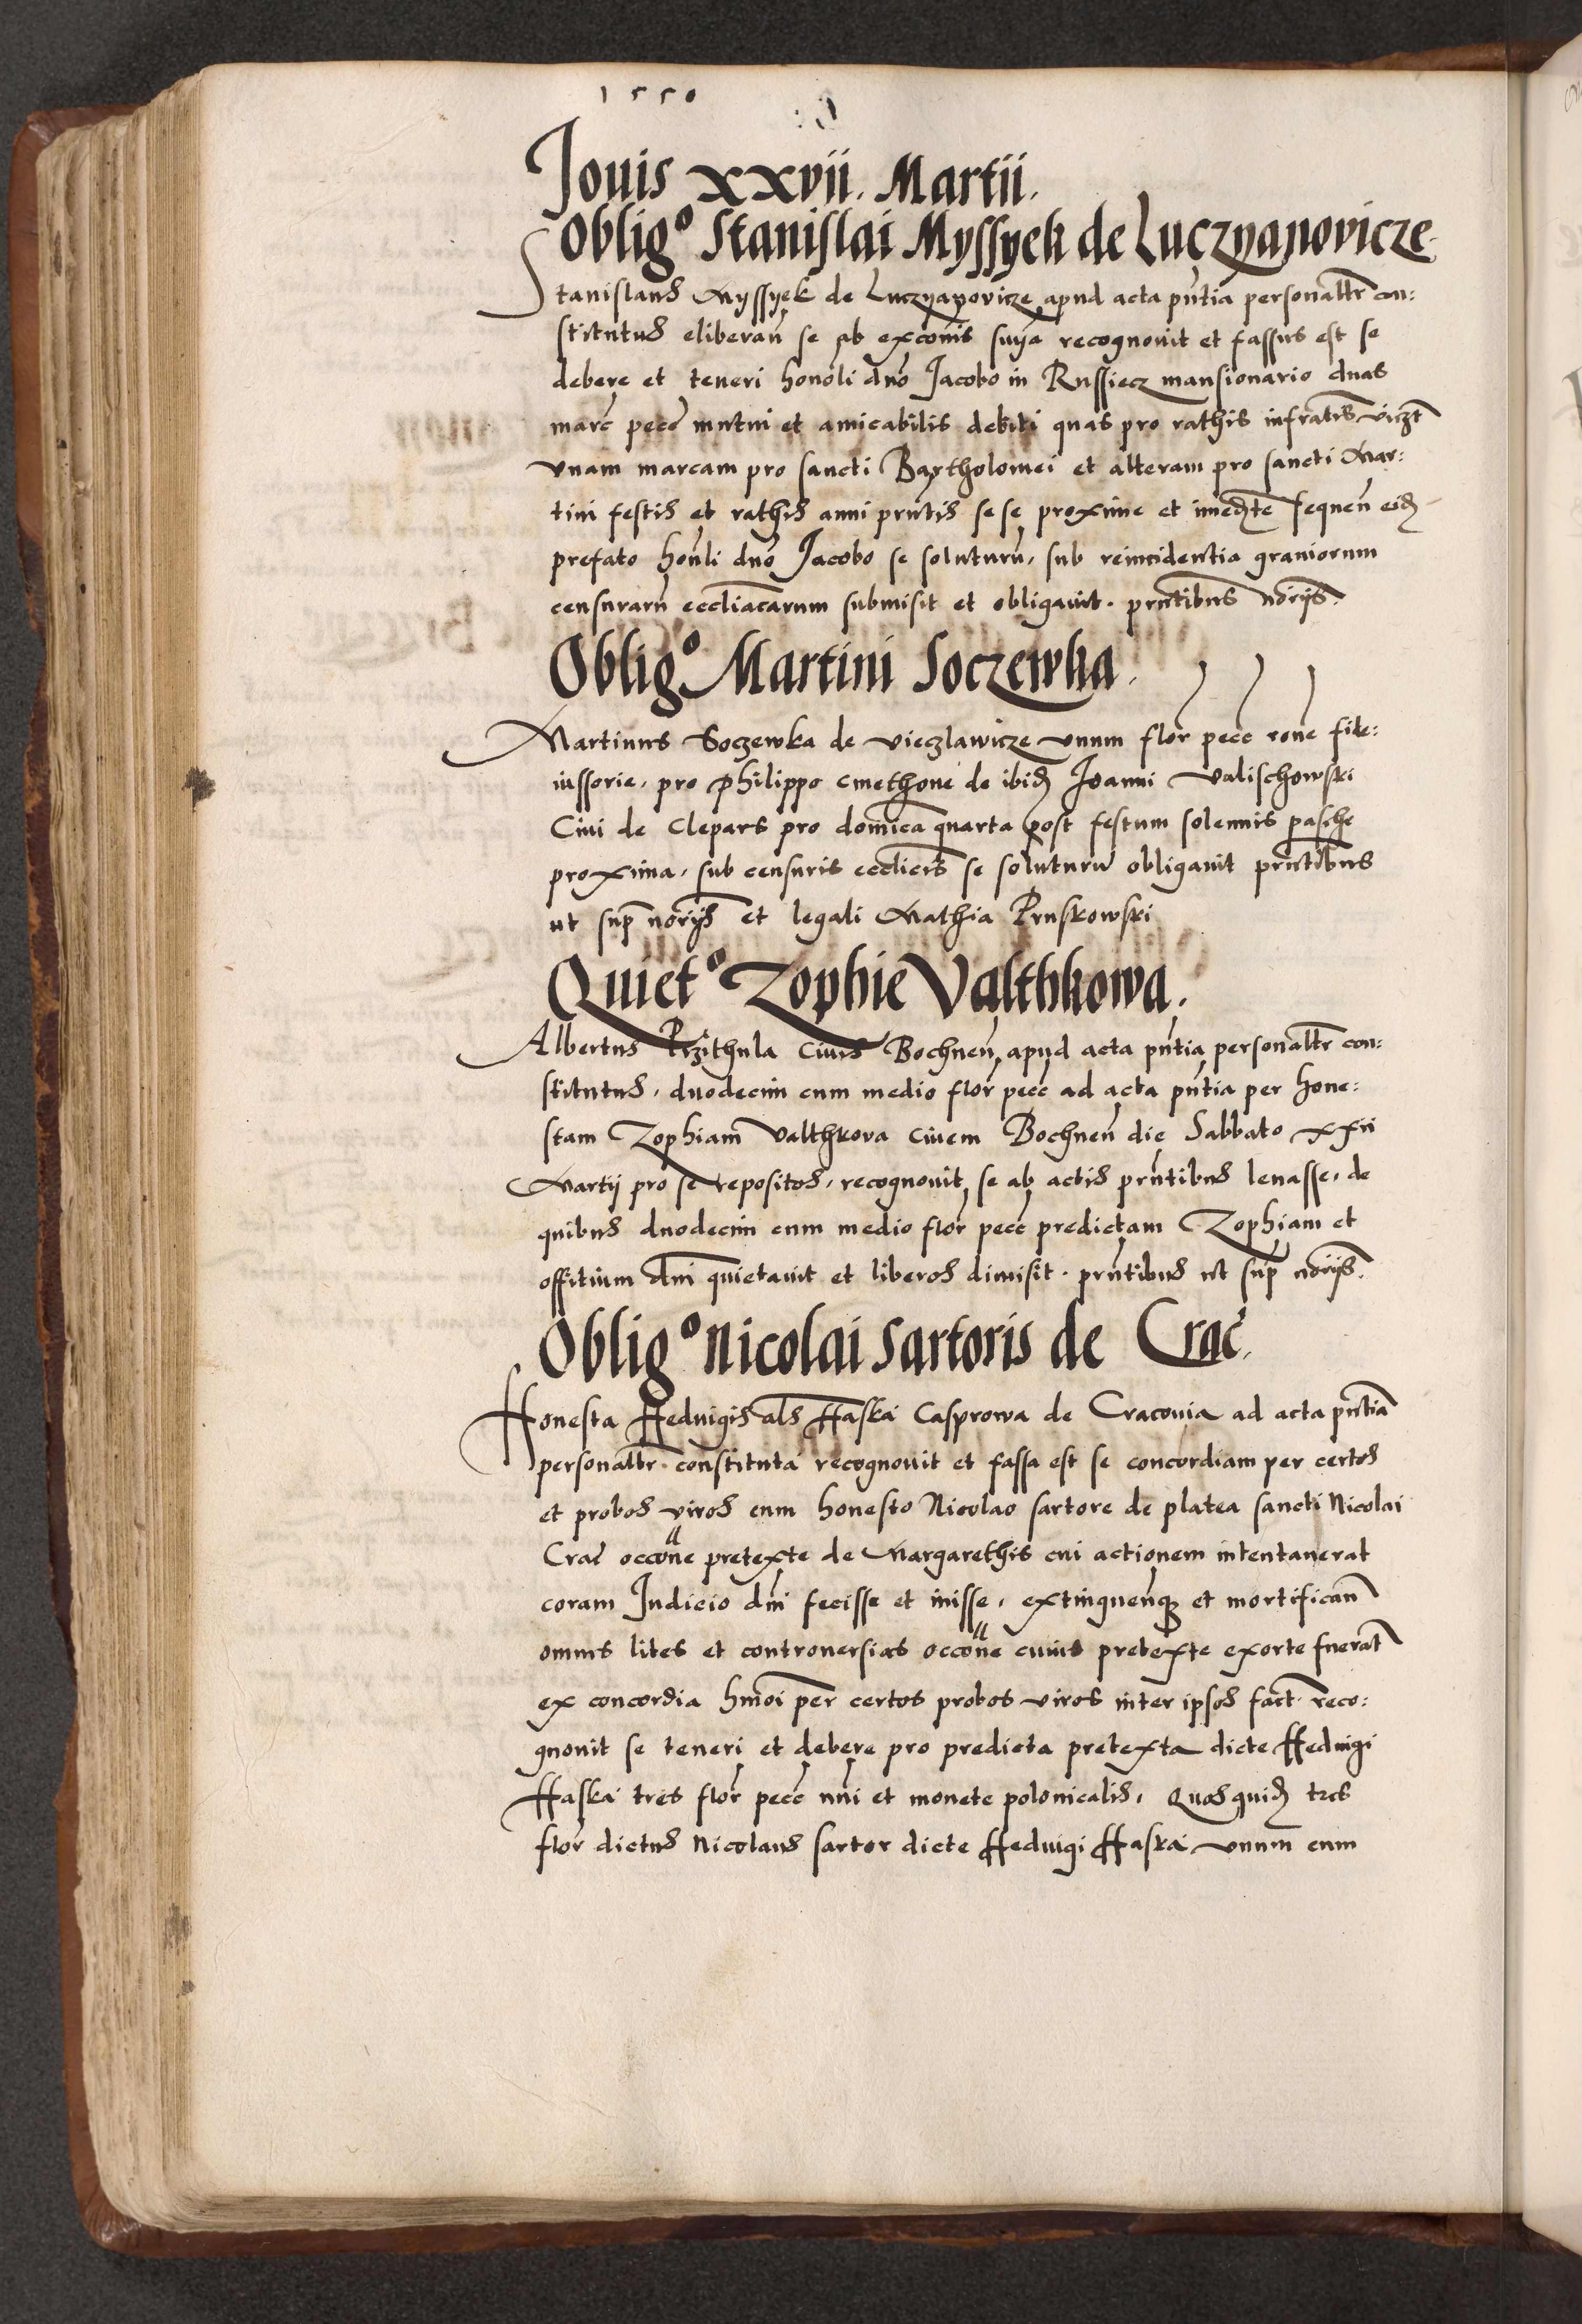 1550
Jouis xxvii. Martii.
Obligº Stanislai Myssyek de Luczyanovicze
Stanislaus Myssyek de Luczyanovicze apud acta pñtia personalitr con:
stitutus eliberañ se ab excõnis snÿa recognouit et fassus est se
debere et teneri honoli dno Jacobo in Russiecz mansionario duas
marc̃ pecc̃ mutui et amicabilis debiti quas pro rathis infratis viczt
vnam marcam pro sancti Bartholomei et alteram pro sancti Mar:
tini festis et rathis anni prntis se se proxime et imedte sequeñ eid
prefato honli dno Jacobo se soluturũ, sub reincidentia grauiorum
censurarũ eccliacarum submisit et obligauit. prntibus norijs.
Obligº Martini Soczewka.
Martinus Soczewka de Vieczlawicze vnum flor pecc rone fide:
iussorie, pro Philippo cmethone de ibid Joanni Valischowski
Ciui de Clepars pro domica quarta post festum solennis pasche
proxima, sub censuris ecclicis se soluturũ obligauit prntibus
ut sup norijs et legali Mathia Pruskowski
Quietº Zophie Valthkowa.
Albertus Przithula Ciuis Bochneñ apud acta pñtia personalitr con:
stitutus, duodecim cum medio flor pecc ad acta pñtia per hone:
stam Zophiam Valthkova ciuem Bochneñ die Sabbato xxii
Martij pro se repositos, recognouit se ab actis prntibus leuasse, de
quibus duodecim cum medio flor pecc predictam Zophiam et
offitium dni quietauit et liberos dimisit. prntibus ut sup norijs.
Obligº Nicolai Sartoris de Crac̃.
Honesta Heduigis als Haska Casprowa de Cracouia ad acta pñtia
personalitr constituta recognouit et fassa est se concordiam per certos
et probos viros cum honesto Nicolao sartore de platea sancti Nicolai
Crac̃ occone pretexte de Margarethis cui actionem intentauerat
coram Judicio dni fecisse et inisse, extinguenq et mortificañ
omnis lites et controuersias occone cuius pretexte exorte fuerat
ex concordia hmoi per certos probos viros inter ipsos fact. reco:
gnouit se teneri et debere pro predicta pretexta dicte Heduigi
Haska tres flor pecc nũi et monete polonicalis, Quos quid tres
flor dictus Nicolaus sartor dicte Heduigi Haska vnum cum